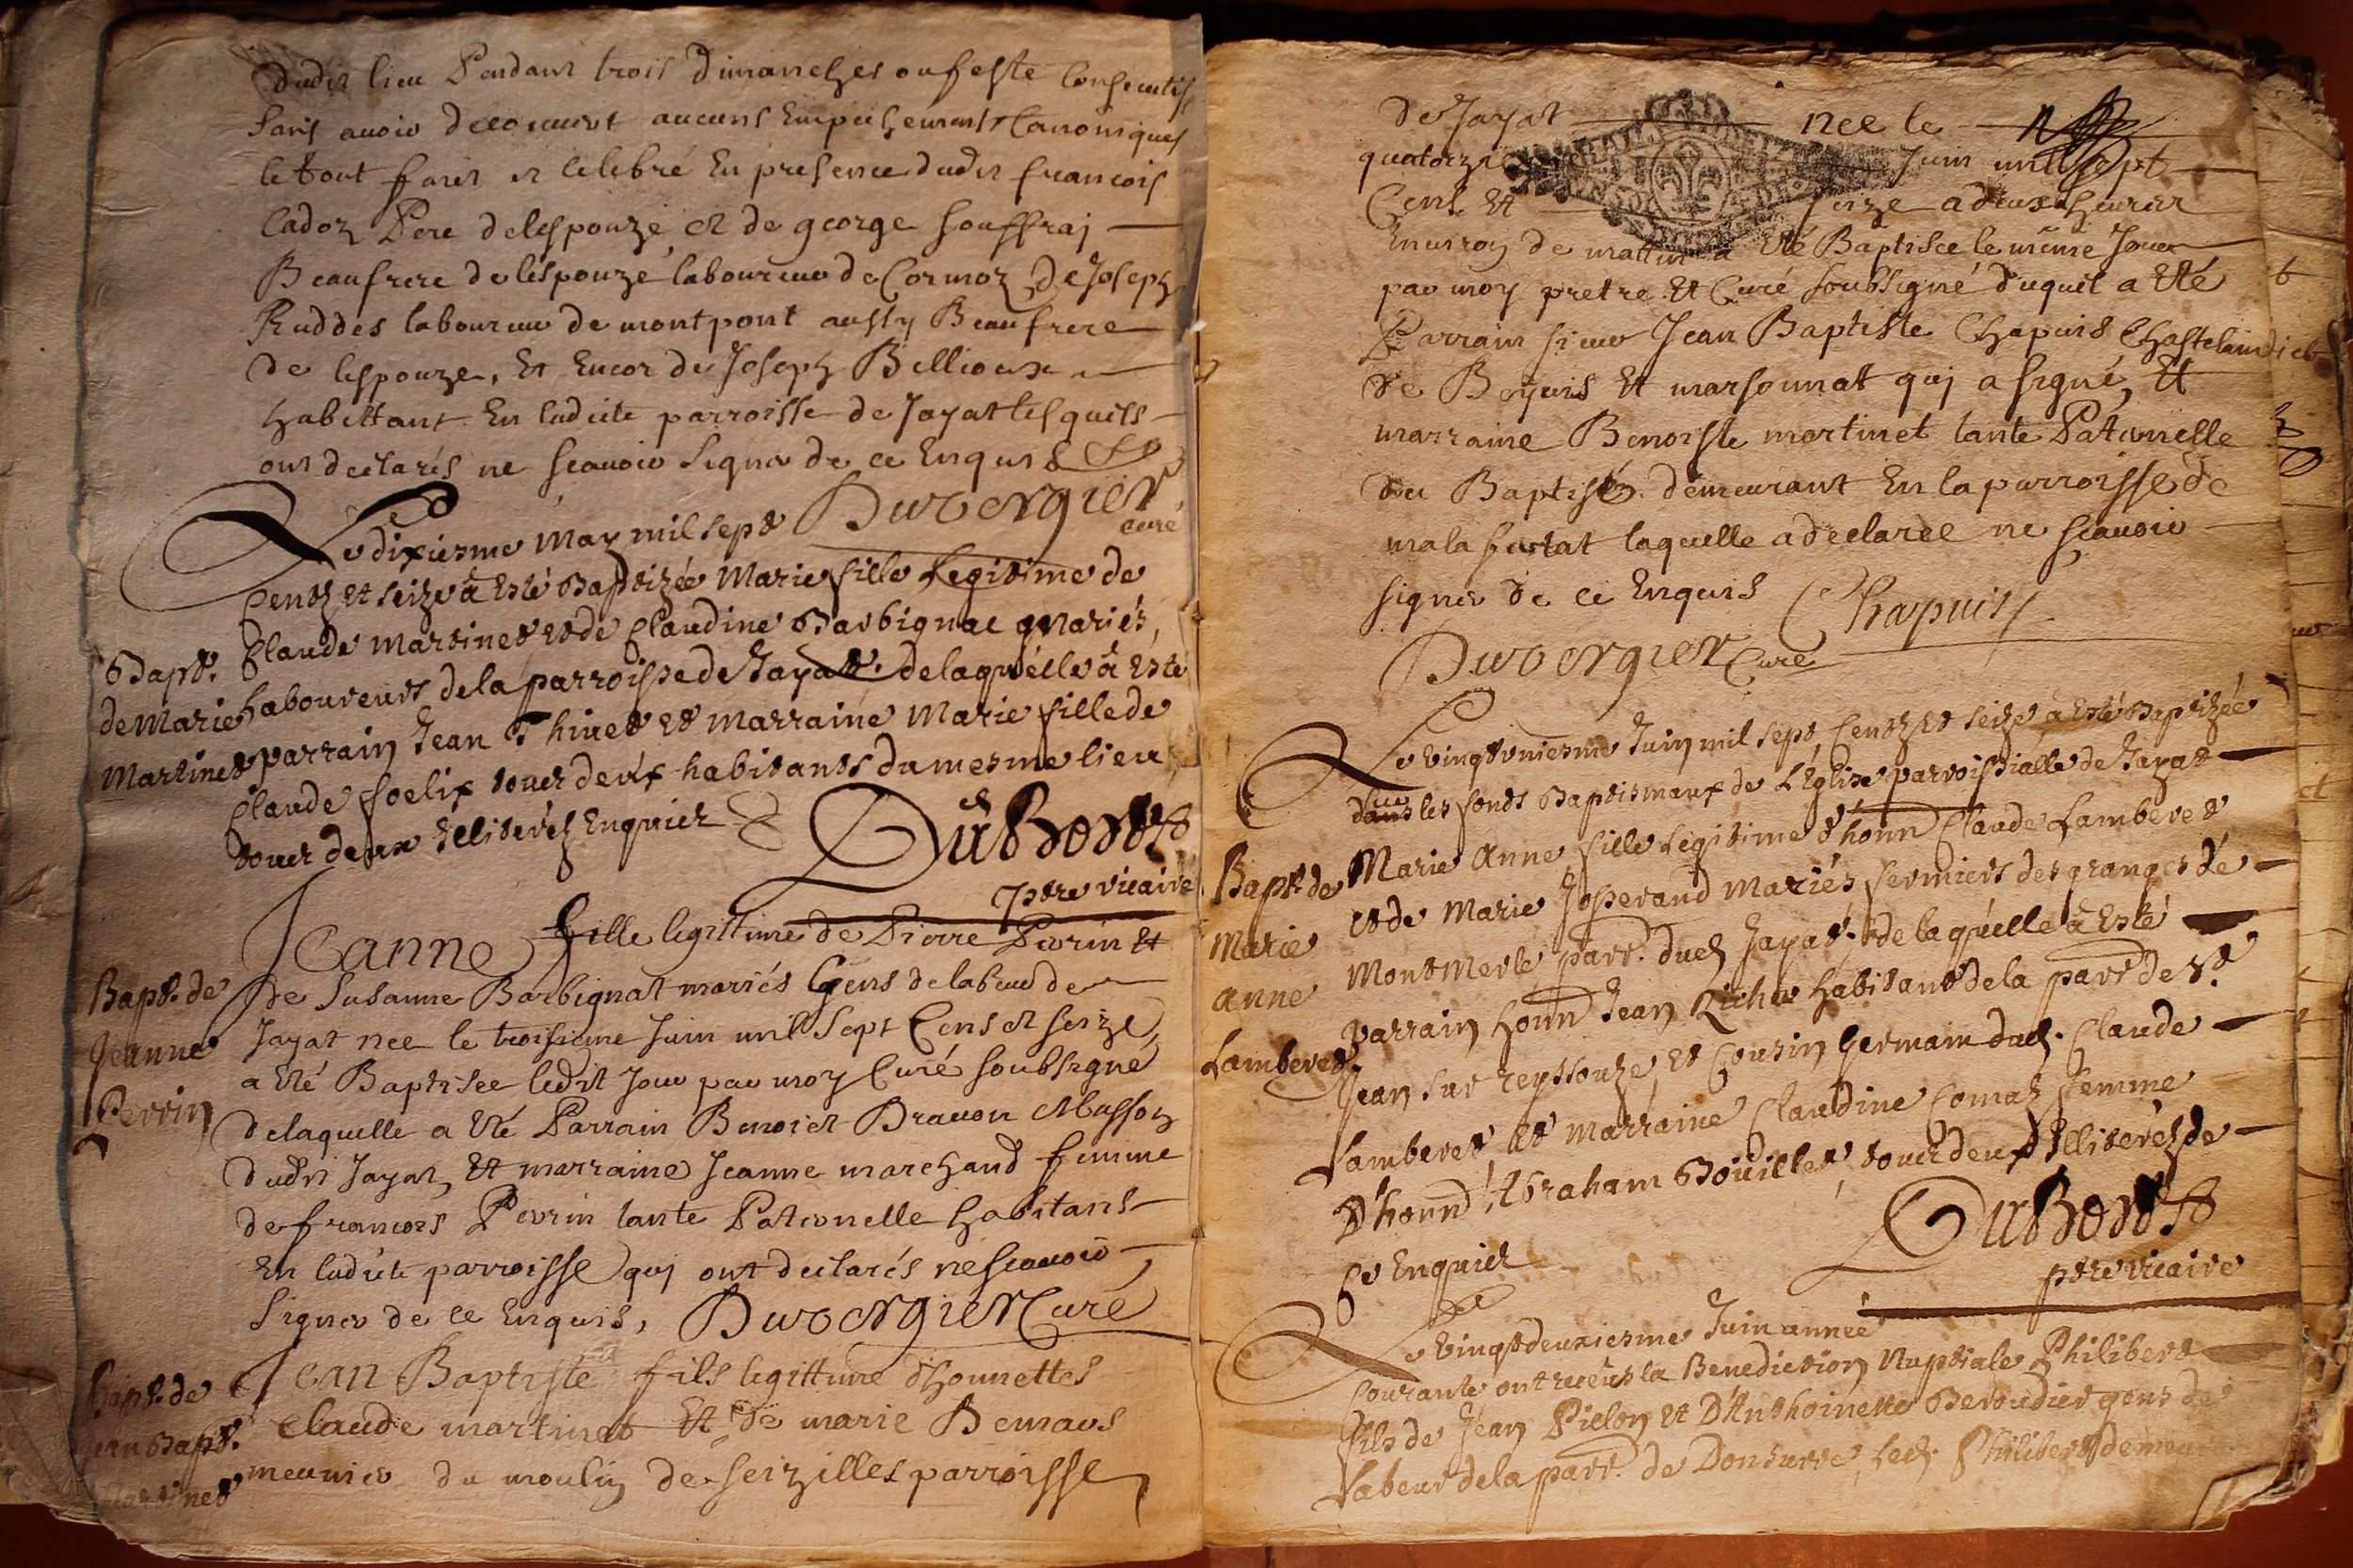 dudit lieu Pendant trois Dimanches ou feste Consecutifs
sans avoir decouvert aucuns Empechements Canoniques
le tout fait et celebré En presence dudit francois
Cadoz Pere delespouzé et de george souffraj
Beaufrere de lespouzé laboureur de Cormoz de Joseph
Ruddes laboureur de montpont aussy Beaufrere
de lespouze, Et Encor de Joseph Bellioux
habittant En ladicte parroisse de Jayat lesquels
ont declarés ne scavoir signer de ce Enquis
Duvergier
curé
Le dixiesme May mil sept
Centz et seize à Esté Baptizée Marie fille Legitime de
Claude Martinet et de Claudine Barbignac mariés,
Bapt. de Marie Martinet
Laboureurs de la parroisse de Jayat. de laquelle à Esté
parrain Jean Thivet et marraine Marie fille de
Claude foelix touts deux habitants du mesme lieu
touts deux Illiterés Enquiers
DuBost
ptre vicaire
Bapt. de
Jeanne
Perrin
Jeanne fille legittime de Pierre Perrin Et
de Susanne Barbignat mariés Gens de labeur de
Jayat nee le troisieme Juin mil Sept Cens et seize,
a Eté Baptisee ledit Jour par moy Curé soubsigné
delaquelle a Eté Parrain Benoict Bravon Masson
dudit Jayat, Et marraine Jeanne marchand femme
de francois Perrin tante Paternelle habitans
En ladicte parroisse quj ont declarés ne scavoir
Signer de ce Enquis, Duvergier Curé
Bapt. de
Jean Bapt.
Martinet
Jean Baptiste fils legittime d'honnettes
Claude martinet Et de marie Bernars
meunier du moulin de Seizilles parroisse
de Jayat nee le
quatorzie Juin mil sept
Cens Et seize a deux heures
Environ de mattin a Eté Baptisee le même Jour
par moy pretre Et Curé soubsigné duquel a Eté
Parrain sieur Jean Baptiste Chapuis Chastelain
de Beyvis Et marsonnat quj a signé, Et
marraine Benoiste martinet tante Paternelle
du Baptisé. demeurant En la parroisse de
malafretat laquelle a declaree ne scavoir
signer de ce Enquis Chapuis
Duvergier Curé
Le vingt uniesme Juin mil sept Centz et seize à Esté Baptizée
dans les fonds Baptismaux de L'église parroissialle de Jayat
Bapt. de
Marie
anne
Lamberet
Marie Anne fille Legitime d'honn Claude Lamberet
et de Marie Josserand Mariés fermiers des granges de
Montmerle parr. dud. Jayat. de laquelle à Esté
parrain honn Jean Richer habitant de la parr de st.
Jean sur reyssouze, et Cousin Germain dud. Claude
Lamberet et marraine Claudine Comaz femme
D'honn Abraham Bouillet, touts deux Illiterés de
Ce Enquiers
DuBost
ptre vicaire
Le vingt deuxiesme Juin année
Courante ont receus la Benediction Nuptiale Philibert
fils de Jean Pielon et D'Anthoinette Berrudier gens de
Labeur de la parr. de Donsurre, Led. Philibert